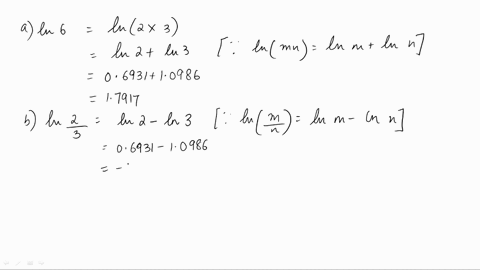 a) ln 6 = ln(2 × 3)
= ln 2 + ln 3 [∵ ln(mn) = ln m + ln n]
= 0.6931 + 1.0986
= 1.7917
b) ln 2/3 = ln 2 - ln 3 [∵ ln(m/n) = ln m - ln n]
= 0.6931 - 1.0986
= -.